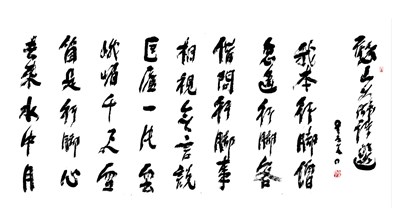 憨山大師
我本行腳僧
行腳客
借問行腳事
相視無言說
匡廬一片雲
峨嵋千尺雪
箇是行腳心
來水中月